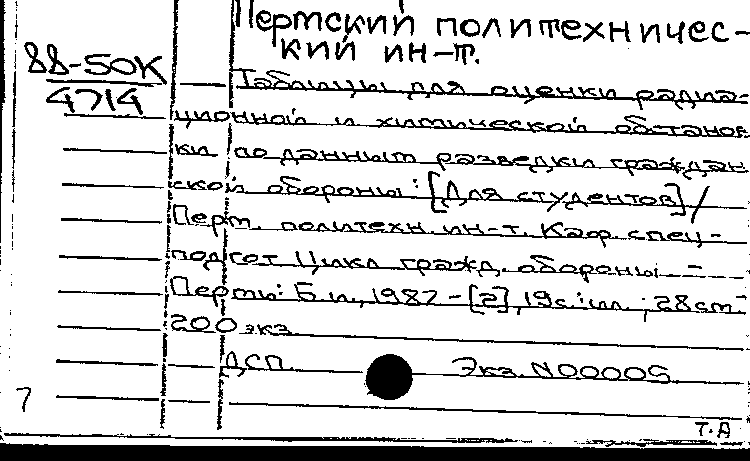 Пермский политехничес-
кий ин-т.
88-50К
4714
Таблицы для оценки радиа-
ционной и химической обстанов
ки по данным разведки граждан
ской обороны: [Для студентов] /
Перм. политехн. ин-т. Каф. спец-
подгот. Цикл гражд. обороны –
Пермь: Б.и., 1982 – [2], 19с.: ил.; 28 см. –
200 экз.
ДСП. Экз. N00005
7
Т.А